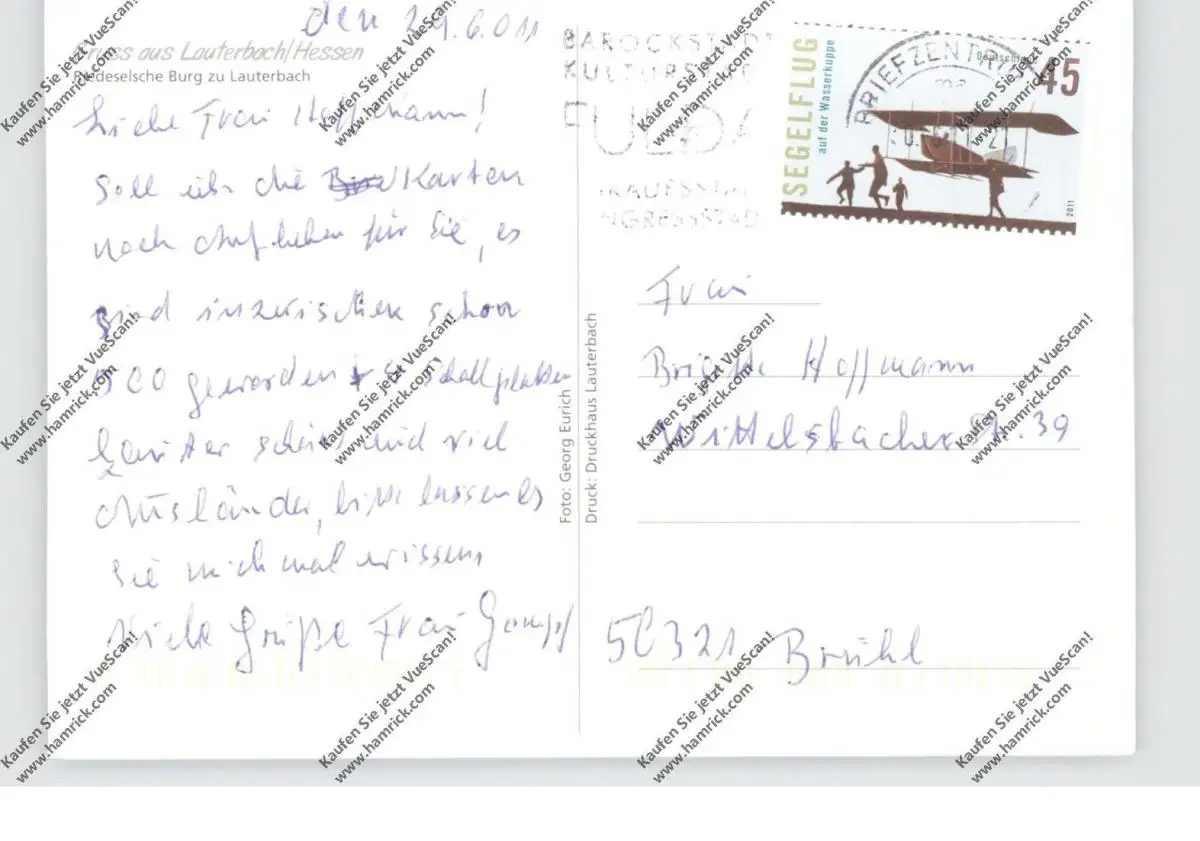 den 29.6.011
Gruss aus Lauterbach/Hessen
Riedeselsche Burg zu Lauterbach
Liebe Frau Hoffmann!
Soll ich die Karten
noch aufheben für Sie, es
sind inzwischen schon
geworden Schallplatten
schön und viel
Ausländer, bitte lassen
Sie mich mal wissen
Viele Grüße Frau
Foto: Georg Eurich
Druck: Druckhaus Lauterbach
BAROCKSTADT
FULDA
BRIEFZENTRUM
SEGELFLUG
auf der Wasserkuppe
Deutschland
45
2011
Frau
Brigitte Hoffmann
Wittelsbacher Str. 39
50321 Brühl
Kaufen Sie jetzt VueScan!
www.hamrick.com
Kaufen Sie jetzt VueScan!
www.hamrick.com
Kaufen Sie jetzt VueScan!
www.hamrick.com
Kaufen Sie jetzt VueScan!
www.hamrick.com
Kaufen Sie jetzt VueScan!
www.hamrick.com
Kaufen Sie jetzt VueScan!
www.hamrick.com
Kaufen Sie jetzt VueScan!
www.hamrick.com
Kaufen Sie jetzt VueScan!
www.hamrick.com
Kaufen Sie jetzt VueScan!
www.hamrick.com
Kaufen Sie jetzt VueScan!
www.hamrick.com
Kaufen Sie jetzt VueScan!
www.hamrick.com
Kaufen Sie jetzt VueScan!
www.hamrick.com